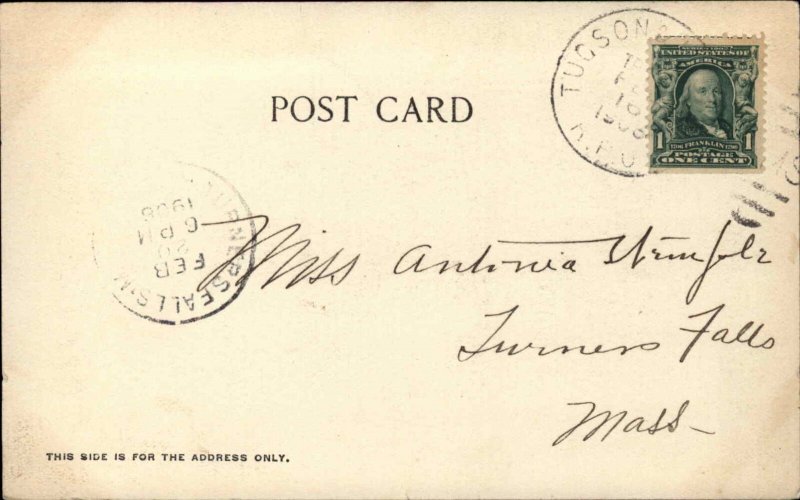 TUCSON
16
1908
R.P.O.
SERIES 1902
UNITED STATES OF
AMERICA
1 1
1706 FRANKLIN 1790
POSTAGE
ONE CENT
POST CARD
TURNERS FALLS
FEB
20
6 PM
1908
Miss Antonia
Turners Falls
Mass-
THIS SIDE IS FOR THE ADDRESS ONLY.